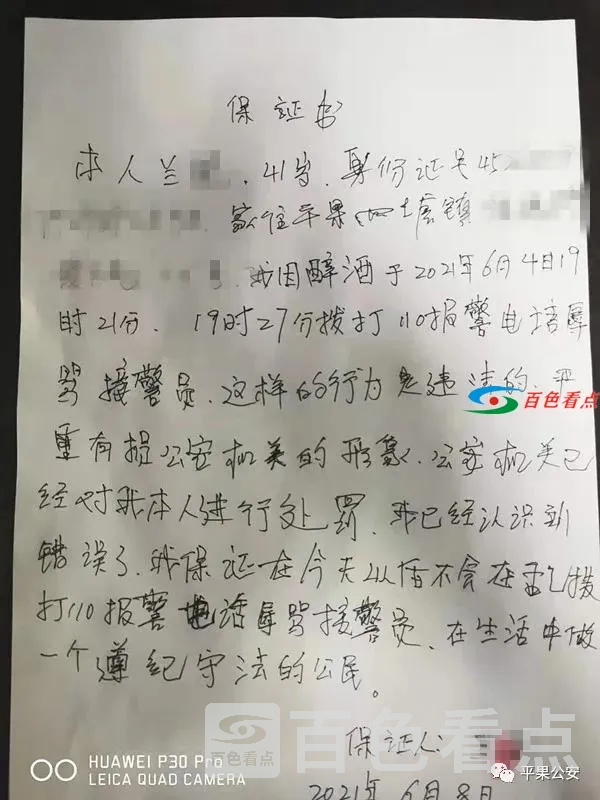 保证书
本人兰 ，41岁，身份证号45
家住平果四塘镇
，我因醉酒于2021年6月4日19
时21分、19时27分拨打110报警电话辱
骂接警员，这样的行为是违法的，严
重有损公安机关的形象，公安机关已
经对我本人进行处罚，我已经认识到
错误了，我保证在今天以后不会在乱拨
打110报警电话辱骂接警员，在生活中做
一个遵纪守法的公民。
保证人：
2021年6月8日
百色看点
百色看点
百色看点
HUAWEI P30 Pro
LEICA QUAD CAMERA
平果公安